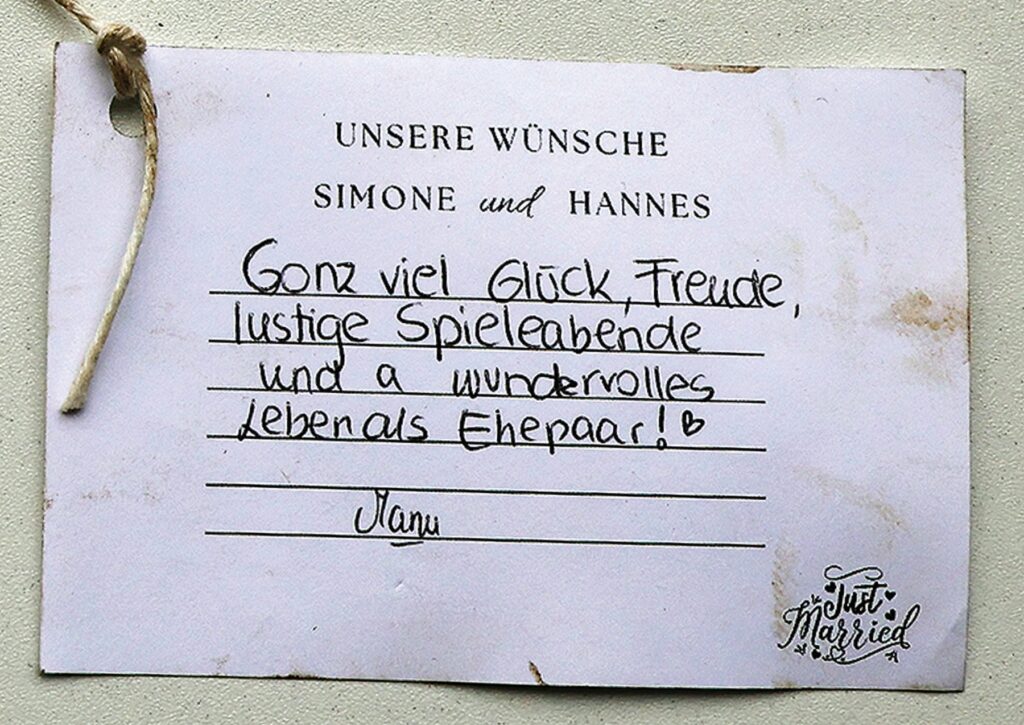 UNSERE WÜNSCHE
SIMONE und HANNES
Ganz viel Glück, Freude,
lustige Spieleabende
und a wundervolles
Leben als Ehepaar! ♡
Manu
Just
Married